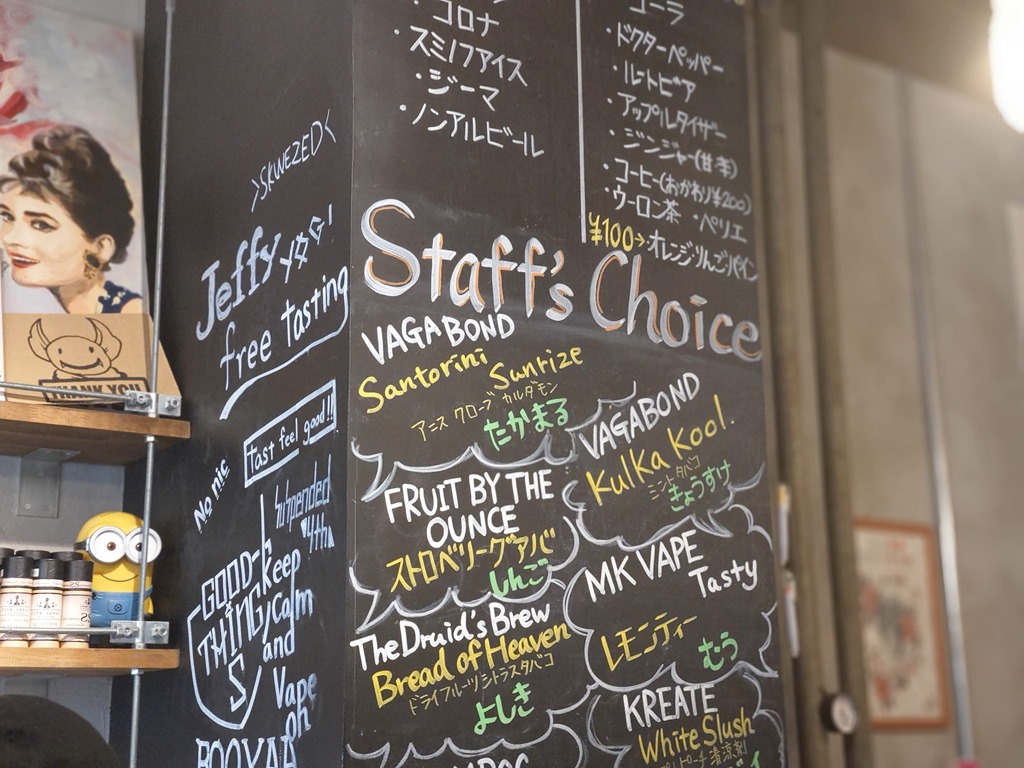 ・コロナ
・スミノフアイス
・ジーマ
・ノンアルビール
コーラ
・ドクターペッパー
・ルートビア
・アップルタイザー
・ジンジャー(甘・辛)
・コーヒー(おかわり¥200)
・ウーロン茶 ・ペリエ
¥100→・オレンジ・りんご・パイン
>SKWEZED<
Jeffy
free tasting
THANK YOU
Tast feel good!!
No nic
Suspended
4th
GOOD
THING
S
keep
calm
and
Vape
on
Staff's Choice
VAGABOND
Santorini Sunrize
アニス クローブ カルダモン
たかまる
VAGABOND
Kulka Kool.
ミントタバコ
きょうすけ
FRUIT BY THE
OUNCE
ストロベリーグアバ
しんご
MK VAPE
Tasty
レモンティー
むう
The Druid's Brew
Bread of Heaven
ドライフルーツシトラスタバコ
よしき
KREATE
White Slush